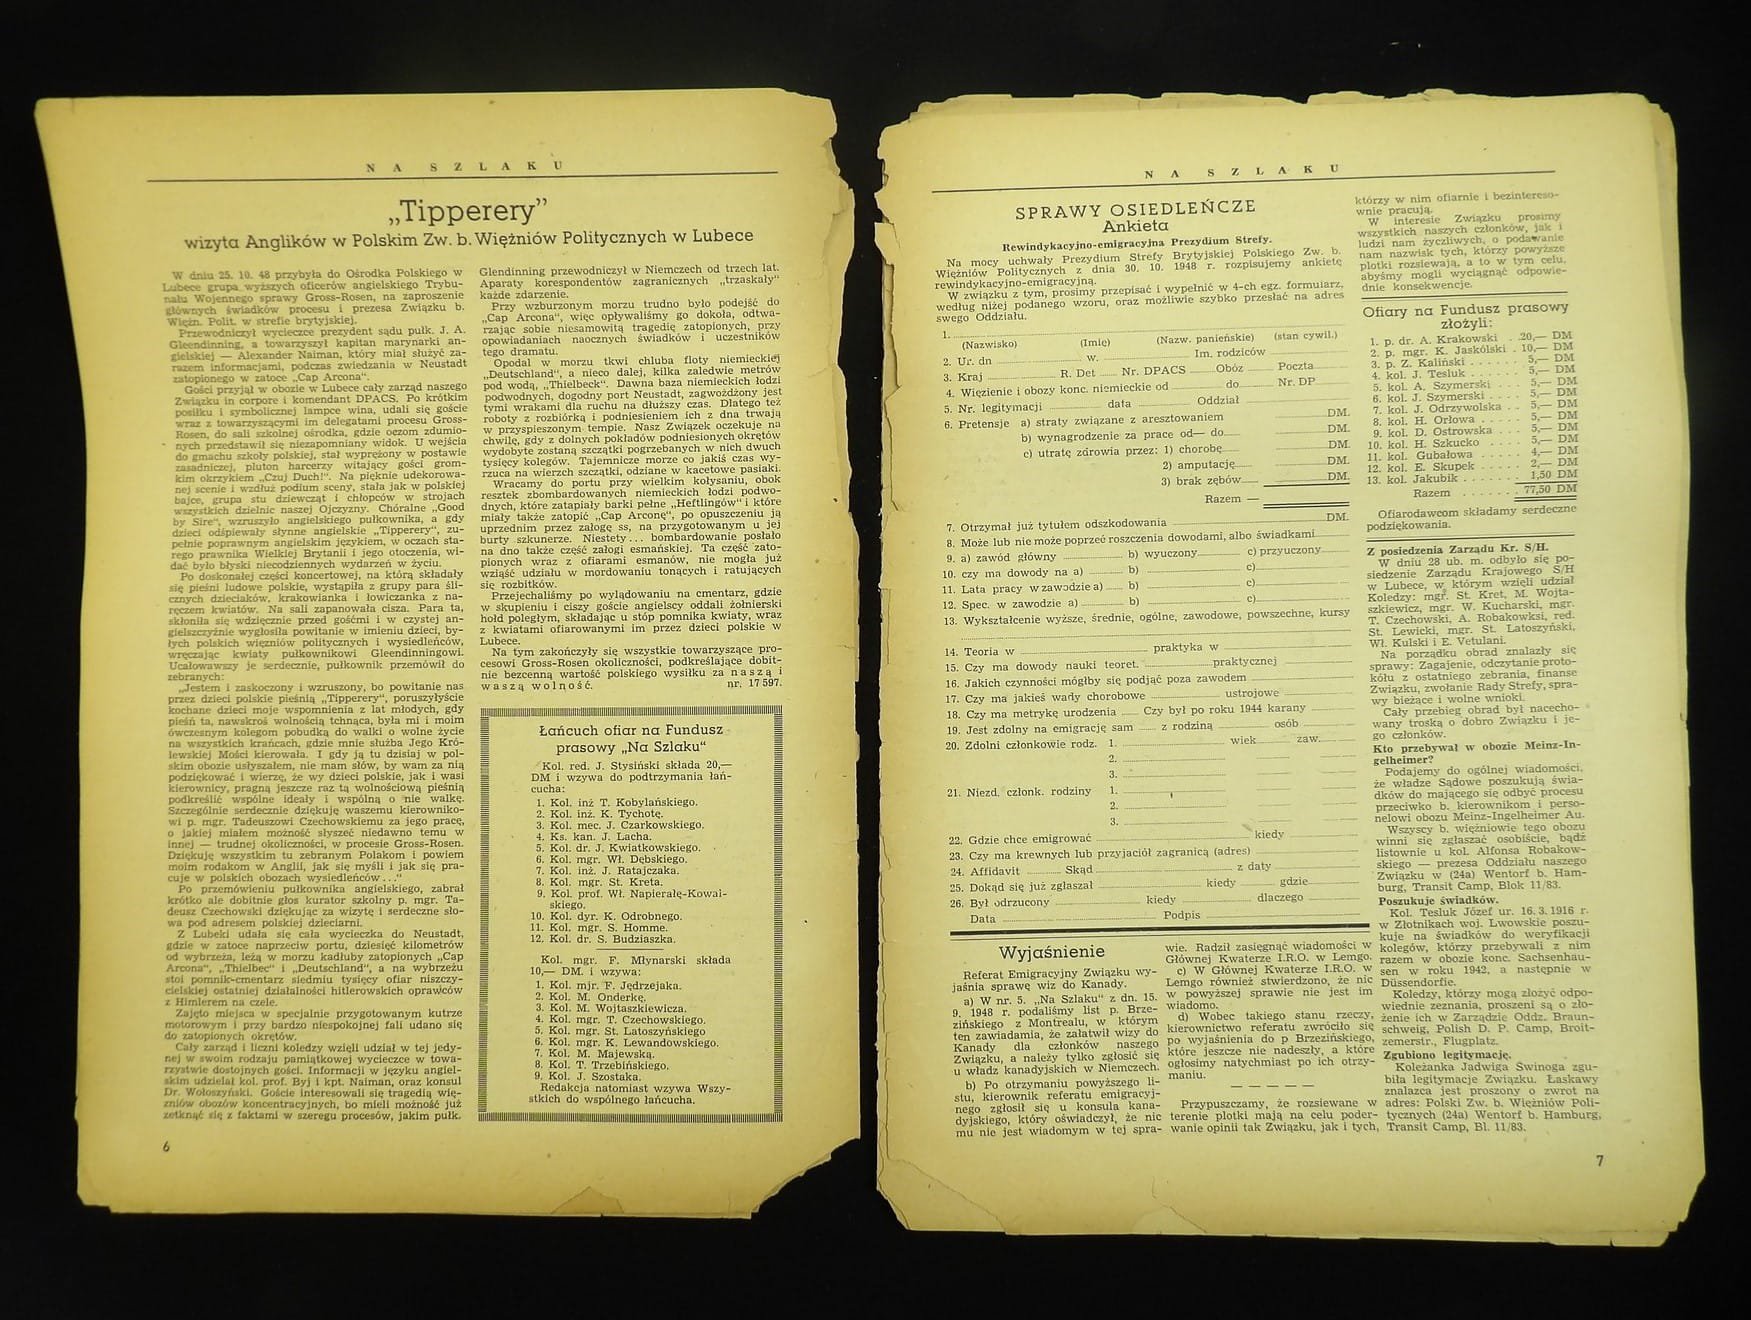 N A  S Z L A K U
„Tipperery”
wizyta Anglików w Polskim Zw. b. Więźniów Politycznych w Lubece
W dniu 25. 10. 48 przybyła do Ośrodka Polskiego w
Lubece grupa wyższych oficerów angielskiego Trybu-
nału Wojennego sprawy Gross-Rosen, na zaproszenie
głównych świadków procesu i prezesa Związku b.
Więźn. Polit. w strefie brytyjskiej.
Przewodniczył wycieczce prezydent sądu pułk. J. A.
Gleendinning, a towarzyszył kapitan marynarki an-
gielskiej — Alexander Naiman, który miał służyć za-
razem informacjami, podczas zwiedzania w Neustadt
zatopionego w zatoce „Cap Arcona”.
Gości przyjął w obozie w Lubece cały zarząd naszego
Związku in corpore i komendant DPACS. Po krótkim
posiłku i symbolicznej lampce wina, udali się goście
wraz z towarzyszącymi im delegatami procesu Gross-
Rosen, do sali szkolnej ośrodka, gdzie oczom zdumio-
nych przedstawił się niezapomniany widok. U wejścia
do gmachu szkoły polskiej, stał wyprężony w postawie
zasadniczej, pluton harcerzy witający gości grom-
kim okrzykiem „Czuj Duch!”. Na pięknie udekorowa-
nej scenie i wzdłuż podium sceny, stała jak w polskiej
bajce, grupa stu dziewcząt i chłopców w strojach
wszystkich dzielnic naszej Ojczyzny. Chóralne „Good
by Sire”, wzruszyło angielskiego pułkownika, a gdy
dzieci odśpiewały słynne angielskie „Tipperery”, zu-
pełnie poprawnym angielskim językiem, w oczach sta-
rego prawnika Wielkiej Brytanii i jego otoczenia, wi-
dać było błyski niecodziennych wydarzeń w życiu.
Po doskonałej części koncertowej, na którą składały
się pieśni ludowe polskie, wystąpiła z grupy para śli-
cznych dzieciaków, krakowianka i łowiczanka z na-
ręczem kwiatów. Na sali zapanowała cisza. Para ta,
skłoniła się wdzięcznie przed gośćmi i w czystej an-
gielszczyźnie wygłosiła powitanie w imieniu dzieci, by-
łych polskich więźniów politycznych i wysiedleńców,
wręczając kwiaty pułkownikowi Gleendinningowi.
Ucałowawszy je serdecznie, pułkownik przemówił do
zebranych:
„Jestem i zaskoczony i wzruszony, bo powitanie nas
przez dzieci polskie pieśnią „Tipperery”, poruszyłyście
kochane dzieci moje wspomnienia z lat młodych, gdy
pieśń ta, nawskroś wolnością tchnąca, była mi i moim
ówczesnym kolegom pobudką do walki o wolne życie
na wszystkich krańcach, gdzie mnie służba Jego Kró-
lewskiej Mości kierowała. I gdy ją tu dzisiaj w pol-
skim obozie usłyszałem, nie mam słów, by wam za nią
podziękować i wierzę, że wy dzieci polskie, jak i wasi
kierownicy, pragną jeszcze raz tą wolnościową pieśnią
podkreślić wspólne ideały i wspólną o nie walkę.
Szczególnie serdecznie dziękuję waszemu kierowniko-
wi p. mgr. Tadeuszowi Czechowskiemu za jego pracę,
o jakiej miałem możność słyszeć niedawno temu w
innej — trudnej okoliczności, w procesie Gross-Rosen.
Dziękuję wszystkim tu zebranym Polakom i powiem
moim rodakom w Anglii, jak się myśli i jak się pra-
cuje w polskich obozach wysiedleńców . . .”
Po przemówieniu pułkownika angielskiego, zabrał
krótko ale dobitnie głos kurator szkolny p. mgr. Ta-
deusz Czechowski dziękując za wizytę i serdeczne sło-
wa pod adresem polskiej dzieciarni.
Z Lubeki udała się cała wycieczka do Neustadt,
gdzie w zatoce naprzeciw portu, dziesięć kilometrów
od wybrzeża, leżą w morzu kadłuby zatopionych „Cap
Arcona”, „Thielbec” i „Deutschland”, a na wybrzeżu
stoi pomnik-cmentarz siedmiu tysięcy ofiar niszczy-
cielskiej ostatniej działalności hitlerowskich oprawców
z Himlerem na czele.
Zajęto miejsca w specjalnie przygotowanym kutrze
motorowym i przy bardzo niespokojnej fali udano się
do zatopionych okrętów.
Cały zarząd i liczni koledzy wzięli udział w tej jedy-
nej w swoim rodzaju pamiątkowej wycieczce w towa-
rzystwie dostojnych gości. Informacji w języku angiel-
skim udzielał kol. prof. Byj i kpt. Naiman, oraz konsul
Dr. Wołoszyński. Goście interesowali się tragedią wię-
źniów obozów koncentracyjnych, bo mieli możność już
zetknąć się z faktami w szeregu procesów, jakim pułk.
Glendinning przewodniczył w Niemczech od trzech lat.
Aparaty korespondentów zagranicznych „trzaskały”
każde zdarzenie.
Przy wzburzonym morzu trudno było podejść do
„Cap Arcona”, więc opływaliśmy go dokoła, odtwa-
rzając sobie niesamowitą tragedię zatopionych, przy
opowiadaniach naocznych świadków i uczestników
tego dramatu.
Opodal w morzu tkwi chluba floty niemieckiej
„Deutschland”, a nieco dalej, kilka zaledwie metrów
pod wodą, „Thielbeck”. Dawna baza niemieckich łodzi
podwodnych, dogodny port Neustadt, zagwożdżony jest
tymi wrakami dla ruchu na dłuższy czas. Dlatego też
roboty z rozbiórką i podniesieniem ich z dna trwają
w przyspieszonym tempie. Nasz Związek oczekuje na
chwilę, gdy z dolnych pokładów podniesionych okrętów
wydobyte zostaną szczątki pogrzebanych w nich dwuch
tysięcy kolegów. Tajemnicze morze co jakiś czas wy-
rzuca na wierzch szczątki, odziane w kacetowe pasiaki.
Wracamy do portu przy wielkim kołysaniu, obok
resztek zbombardowanych niemieckich łodzi podwo-
dnych, które zatapiały barki pełne „Heftlingów” i które
miały także zatopić „Cap Arconę”, po opuszczeniu ją
uprzednim przez załogę ss, na przygotowanym u jej
burty szkunerze. Niestety . . . bombardowanie posłało
na dno także część załogi esmańskiej. Ta część zato-
pionych wraz z ofiarami esmanów, nie mogła już
wziąść udziału w mordowaniu tonących i ratujących
się rozbitków.
Przejechaliśmy po wylądowaniu na cmentarz, gdzie
w skupieniu i ciszy goście angielscy oddali żołnierski
hołd poległym, składając u stóp pomnika kwiaty, wraz
z kwiatami ofiarowanymi im przez dzieci polskie w
Lubece.
Na tym zakończyły się wszystkie towarzyszące pro-
cesowi Gross-Rosen okoliczności, podkreślające dobit-
nie bezcenną wartość polskiego wysiłku za n a s z ą i
w a s z ą w o l n o ś ć. nr. 17 597.
Łańcuch ofiar na Fundusz
prasowy „Na Szlaku”
Kol. red. J. Stysiński składa 20,—
DM i wzywa do podtrzymania łań-
cucha:
1. Kol. inż T. Kobylańskiego.
2. Kol. inż. K. Tychotę.
3. Kol. mec. J. Czarkowskiego.
4. Ks. kan. J. Lacha.
5. Kol. dr. J. Kwiatkowskiego.
6. Kol. mgr. Wł. Dębskiego.
7. Kol. inż. J. Ratajczaka.
8. Kol. mgr. St. Kreta.
9. Kol. prof. Wł. Napierałę-Kowal-
skiego.
10. Kol. dyr. K. Odrobnego.
11. Kol. mgr. S. Homme.
12. Kol. dr. S. Budziaszka.
Kol. mgr. F. Młynarski składa
10,— DM. i wzywa:
1. Kol. mjr. F. Jędrzejaka.
2. Kol. M. Onderkę.
3. Kol. M. Wojtaszkiewicza.
4. Kol. mgr. T. Czechowskiego.
5. Kol. mgr. St. Latoszyńskiego
6. Kol. mgr. K. Lewandowskiego.
7. Kol. M. Majewską.
8. Kol. T. Trzebińskiego.
9. Kol. J. Szostaka.
Redakcja natomiast wzywa Wszy-
stkich do wspólnego łańcucha.
6
N A  S Z L A K U
SPRAWY OSIEDLEŃCZE
Ankieta
Rewindykacyjno-emigracyjna Prezydium Strefy.
Na mocy uchwały Prezydium Strefy Brytyjskiej Polskiego Zw. b.
Więźniów Politycznych z dnia 30. 10. 1948 r. rozpisujemy ankietę
rewindykacyjno-emigracyjną.
W związku z tym, prosimy przepisać i wypełnić w 4-ch egz. formularz,
według niżej podanego wzoru, oraz możliwie szybko przesłać na adres
swego Oddziału.
1.
(Nazwisko) (Imię) (Nazw. panieńskie) (stan cywil.)
2. Ur. dn w. Im. rodziców
3. Kraj R. Det Nr. DPACS Obóz Poczta
4. Więzienie i obozy konc. niemieckie od do Nr. DP
5. Nr. legitymacji data Oddział
6. Pretensje a) straty związane z aresztowaniem DM.
b) wynagrodzenie za prace od— do DM.
c) utratę zdrowia przez: 1) chorobę DM.
2) amputację DM.
3) brak zębów DM.
Razem —
7. Otrzymał już tytułem odszkodowania DM.
8. Może lub nie może poprzeć roszczenia dowodami, albo świadkami
9. a) zawód główny b) wyuczony c) przyuczony
10. czy ma dowody na a) b) c)
11. Lata pracy w zawodzie a) b) c)
12. Spec. w zawodzie a) b) c)
13. Wykształcenie wyższe, średnie, ogólne, zawodowe, powszechne, kursy
14. Teoria w praktyka w
15. Czy ma dowody nauki teoret. praktycznej
16. Jakich czynności mógłby się podjąć poza zawodem
17. Czy ma jakieś wady chorobowe ustrojowe
18. Czy ma metrykę urodzenia Czy był po roku 1944 karany
19. Jest zdolny na emigrację sam z rodziną osób
20. Zdolni członkowie rodz. 1. wiek zaw.
2.
3.
21. Niezd. członk. rodziny 1.
2.
3.
22. Gdzie chce emigrować kiedy
23. Czy ma krewnych lub przyjaciół zagranicą (adres)
24. Affidavit Skąd z daty
25. Dokąd się już zgłaszał kiedy gdzie
26. Był odrzucony kiedy dlaczego
Data Podpis
Wyjaśnienie
Referat Emigracyjny Związku wy-
jaśnia sprawę wiz do Kanady.
a) W nr. 5. „Na Szlaku” z dn. 15.
9. 1948 r. podaliśmy list p. Brze-
zińskiego z Montrealu, w którym
ten zawiadamia, że załatwił wizy do
Kanady dla członków naszego
Związku, a należy tylko zgłosić się
u władz kanadyjskich w Niemczech.
b) Po otrzymaniu powyższego li-
stu, kierownik referatu emigracyj-
nego zgłosił się u konsula kana-
dyjskiego, który oświadczył, że nic
mu nie jest wiadomym w tej spra-
wie. Radził zasięgnąć wiadomości w
Głównej Kwaterze I.R.O. w Lemgo.
c) W Głównej Kwaterze I.R.O. w
Lemgo również stwierdzono, że nic
w powyższej sprawie nie jest im
wiadomo.
d) Wobec takiego stanu rzeczy,
kierownictwo referatu zwróciło się
po wyjaśnienia do p Brzezińskiego,
które jeszcze nie nadeszły, a które
ogłosimy natychmiast po ich otrzy-
maniu.
— — — — —
Przypuszczamy, że rozsiewane w
terenie plotki mają na celu poder-
wanie opinii tak Związku, jak i tych,
którzy w nim ofiarnie i bezintereso-
wnie pracują.
W interesie Związku prosimy
wszystkich naszych członków, jak i
ludzi nam życzliwych, o podawanie
nam nazwisk tych, którzy powyższe
plotki rozsiewają, a to w tym celu,
abyśmy mogli wyciągnąć odpowie-
dnie konsekwencje.
Ofiary na Fundusz prasowy
złożyli:
1. p. dr. A. Krakowski . .20,— DM
2. p. mgr. K. Jaskólski . 10,— DM
3. p. Z. Kaliński . . . . . . 5,— DM
4. kol. J. Tesluk . . . . . . 5,— DM
5. kol. A. Szymerski . . . 5,— DM
6. kol. J. Szymerski . . . . 5,— DM
7. kol. J. Odrzywolska . . 5,— DM
8. kol. H. Orłowa . . . . . 5,— DM
9. kol. D. Ostrowska . . . 5,— DM
10. kol. H. Szkucko . . . . 5,— DM
11. kol. Gubałowa . . . . . 4,— DM
12. kol. E. Skupek . . . . . 2,— DM
13. kol. Jakubik . . . . . . . 1,50 DM
Razem . . . . . . 77,50 DM
Ofiarodawcom składamy serdeczne
podziękowania.
Z posiedzenia Zarządu Kr. S/H.
W dniu 28 ub. m. odbyło się po-
siedzenie Zarządu Krajowego S/H
w Lubece, w którym wzięli udział
Koledzy: mgr. St. Kret, M. Wojta-
szkiewicz, mgr. W. Kucharski, mgr.
T. Czechowski, A. Robakowksi, red.
St. Lewicki, mgr. St. Latoszyński,
Wł. Kulski i E. Vetulani.
Na porządku obrad znalazły się
sprawy: Zagajenie, odczytanie proto-
kółu z ostatniego zebrania, finanse
Związku, zwołanie Rady Strefy, spra-
wy bieżące i wolne wnioki.
Cały przebieg obrad był nacecho-
wany troską o dobro Związku i je-
go członków.
Kto przebywał w obozie Meinz-In-
gelheimer?
Podajemy do ogólnej wiadomości,
że władze Sądowe poszukują świa-
dków do mającego się odbyć procesu
przeciwko b. kierownikom i perso-
nelowi obozu Meinz-Ingelheimer Au.
Wszyscy b. więźniowie tego obozu
winni się zgłaszać osobiście, bądź
listownie u kol. Alfonsa Robakow-
skiego — prezesa Oddziału naszego
Związku w (24a) Wentorf b. Ham-
burg, Transit Camp, Blok 11/83.
Poszukuje świadków.
Kol. Tesluk Józef ur. 16. 3. 1916 r.
w Złotnikach woj. Lwowskie poszu-
kuje na świadków do weryfikacji
kolegów, którzy przebywali z nim
razem w obozie konc. Sachsenhau-
sen w roku 1942, a następnie w
Düssendorfie.
Koledzy, którzy mogą złożyć odpo-
wiednie zeznania, proszeni są o zło-
żenie ich w Zarządzie Oddz. Braun-
schweig, Polish D. P. Camp, Broit-
zemerstr., Flugplatz.
Zgubiono legitymację.
Koleżanka Jadwiga Swinoga zgu-
biła legitymacje Związku. Łaskawy
znalazca jest proszony o zwrot na
adres: Polski Zw. b. Więźniów Poli-
tycznych (24a) Wentorf b. Hamburg,
Transit Camp, Bl. 11/83.
7